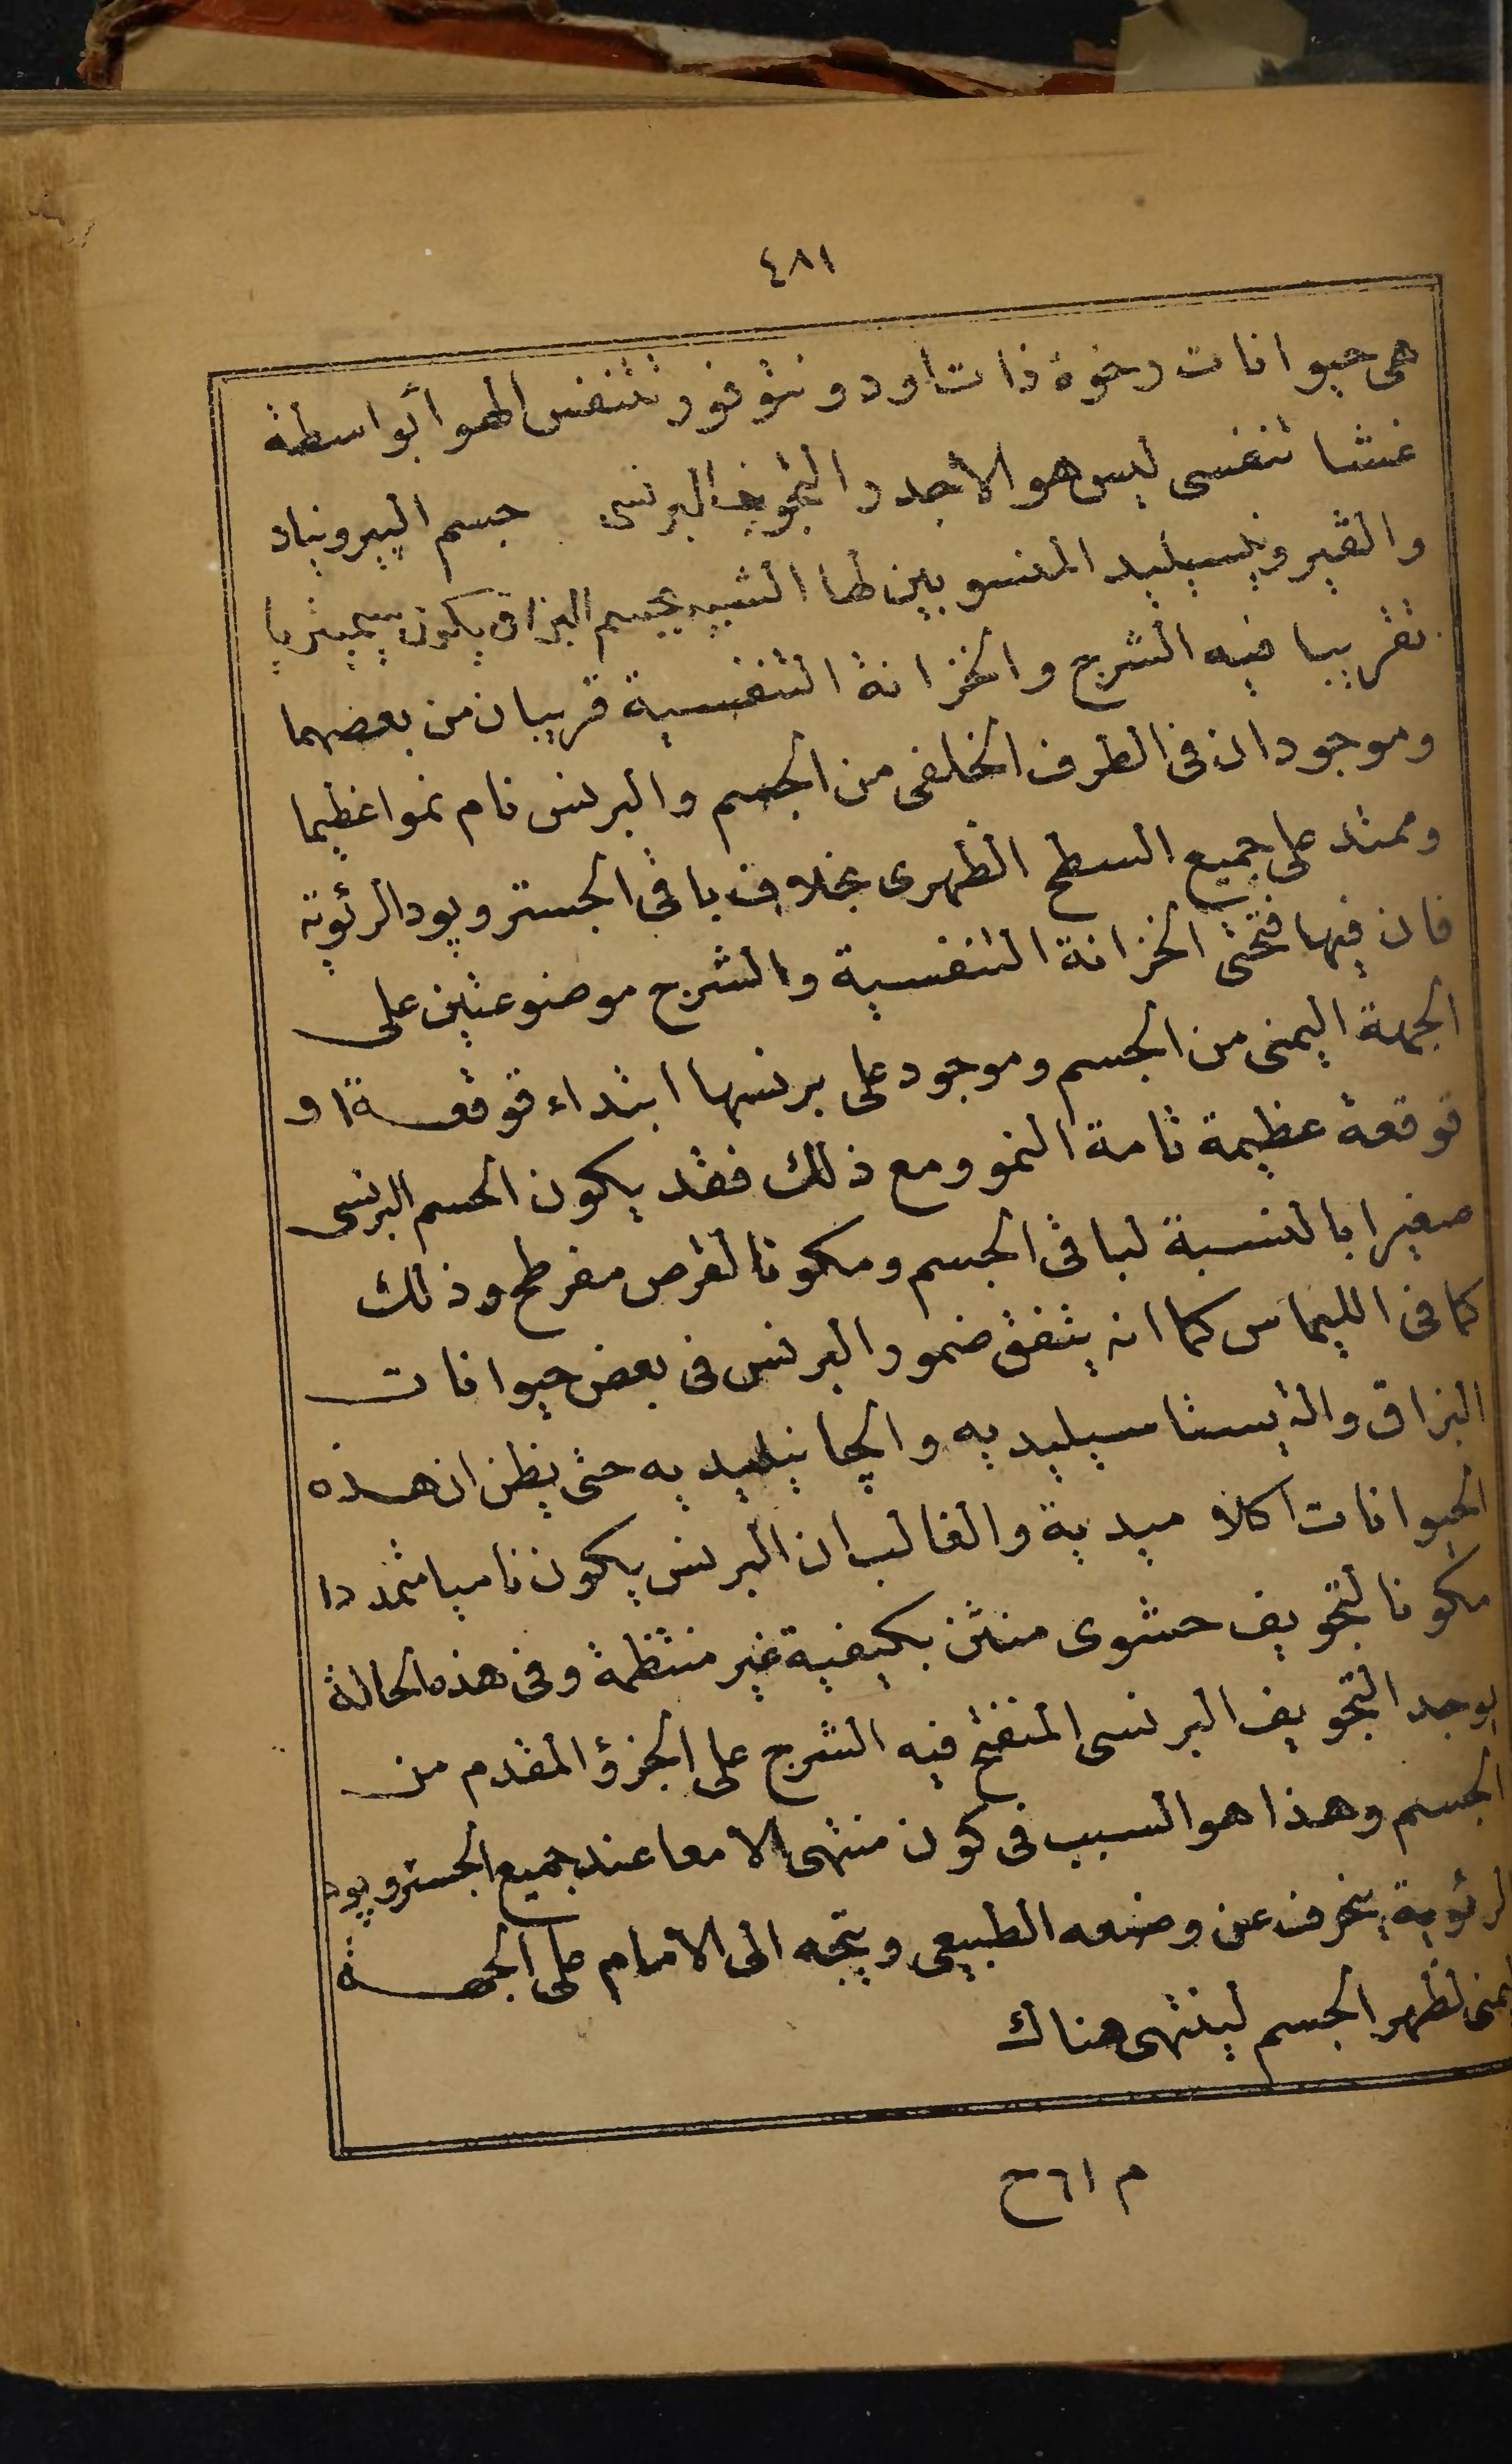 ٤٨١
هى حيوانات رخوة ذات اودونتوفور تتنفس الهوا بواسطة
غشا تنفسى ليس هو الاجدر التجويف البرنسى جسم البيرونياد
والڤيرونيسيليد المنسوبين لها الشبيه بجسم البزاق يكون سيميتريا
تقريبا فيه الشرج والخزانة التنفسية قريبان من بعضهما
وموجودان فى الطرف الخلفى من الجسم والبرنس نام نموا عظيما
وممتد على جميع السطح الظهرى بخلاف باقى الجستروپود الرئوية
فان فيها فتحتى الخزانة التنفسية والشرج موضوعتين على
الجهة اليمنى من الجسم وموجود على برنسها ابتداء قوقعة او
قوقعة عظيمة تامة النمو ومع ذلك فقد يكون الجسم البرنسى
صغيرا بالنسبة لباقى الجسم ومكونا لقرص مفرطح وذلك
كما فى الليماس كما انه يتفق ضمور البرنس فى بعض حيوانات
البزاق والتيستاسيليديه والچانيليديه حتى يظن ان هذه
الحيوانات اكلاميدية والغالب ان البرنس يكون ناميا متمددا
مكونا لتجويف حشوى منثن بكيفية غير منتظمة وفى هذه الحالة
يوجد التجويف البرنسى المنفتح فيه الشرج على الجزؤ المقدم من
الجسم وهذا هو السبب فى كون منتهى الامعا عند جميع الجستروپود
الرئوية ينحرف عن وضعه الطبيعى ويتجه الى الامام على الجهة
اليمنى لظهر الجسم لينتهى هناك
م ٦١ ح